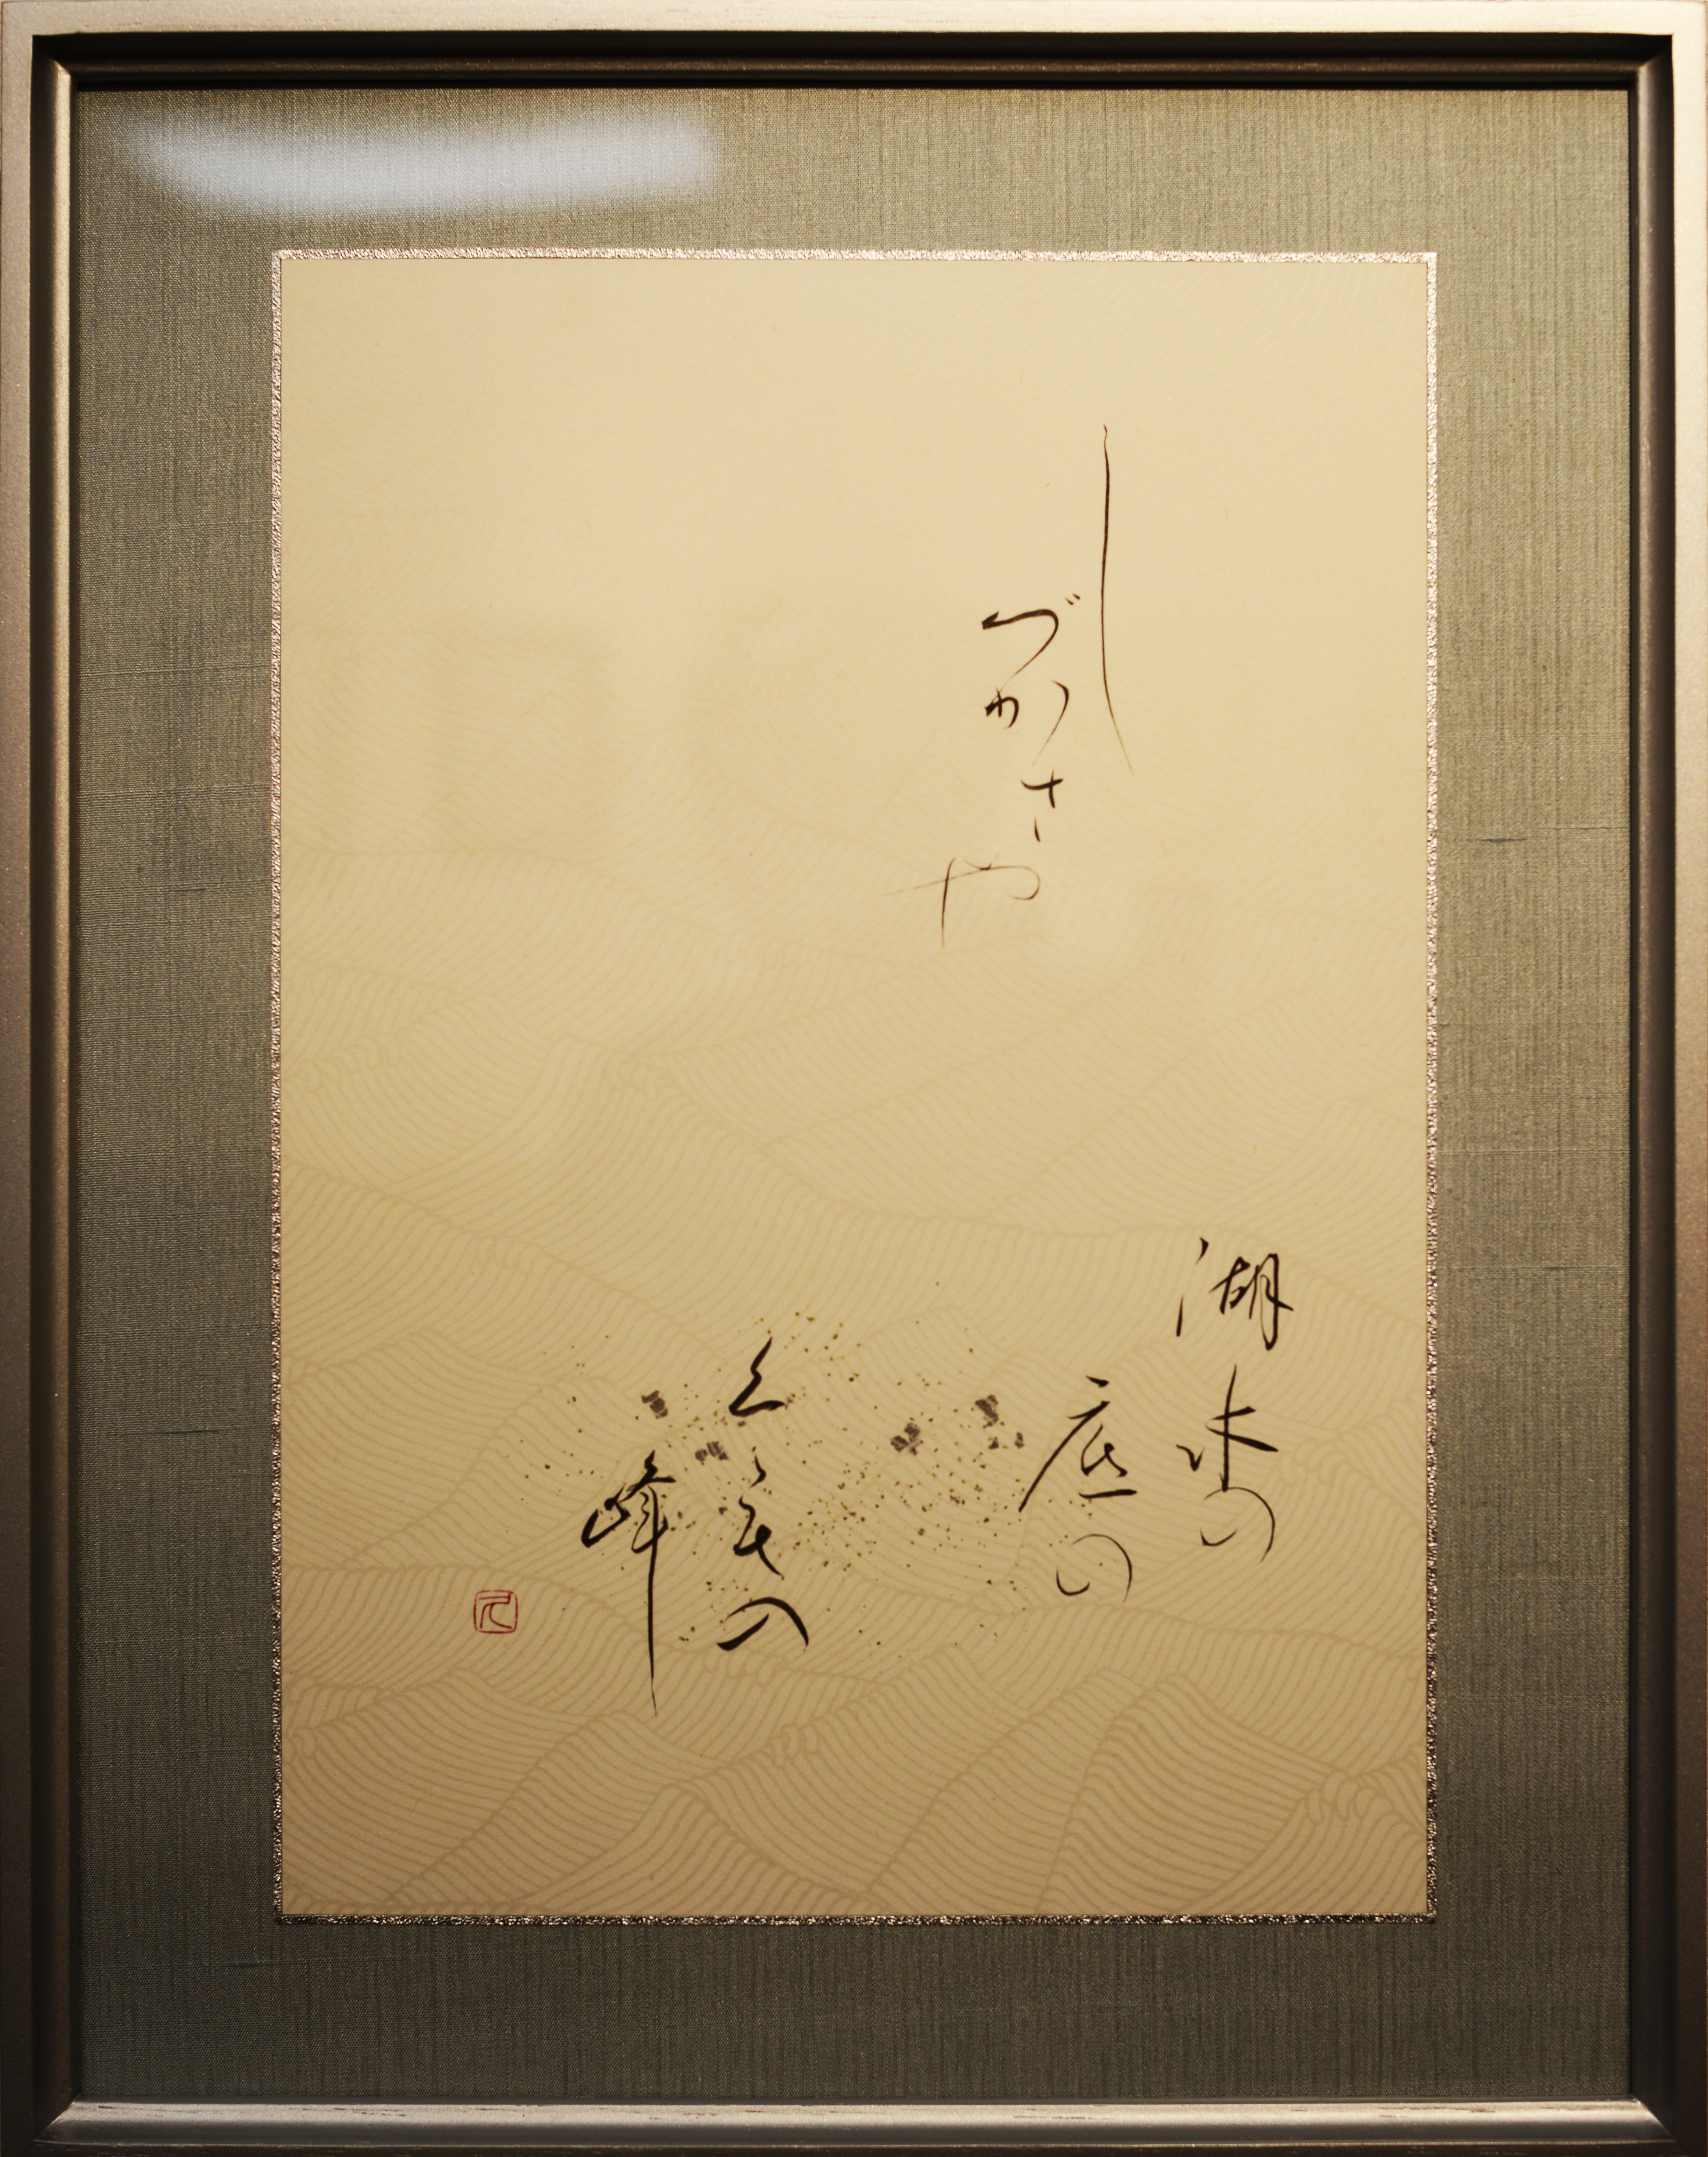 し
づかさや
湖水の
底の
くもの
峰